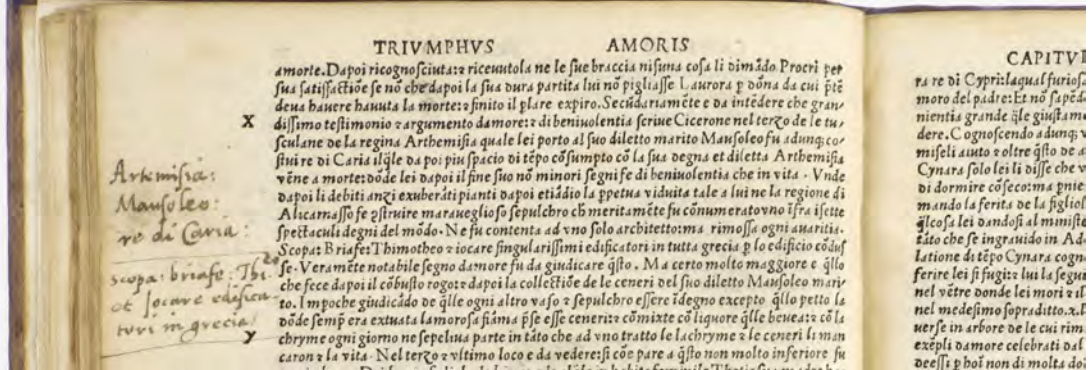 TRIVMPHVS AMORIS
amorte. Dapoi ricognosciuta: ⁊ riceuutola ne le sue braccia nisuna cosa li dimãdo Procri per
sua satissactiõe se nõ che dapoi la sua dura partita lui nõ pigliasse Laurora p dõna da cui ptẽ
deua hauere hauuta la morte: ⁊ finito il plare expiro. Secũdariamẽte e da intẽdere che gran-
X dissimo testimonio ⁊ argumento damore: ⁊ di beniuolentia scriue Cicerone nel terzo de le tu-
sculane de la regina Arthemisia quale lei porto al suo diletto marito Mausoleo fu adunq; co-
stui re di Caria ilq̃le da poi piu spacio di tẽpo cõsumpto cõ la sua degna et diletta Arthemisia
vẽne a morte: dõde lei dapoi il fine suo nõ minori segni fe di beniuolentia che in vita. Vnde
dapoi li debiti anzi exuberãti pianti dapoi etiãdio la ppetua viduita tale a lui ne la regione di
Alicarnasso fe ꝯstruire maraueglioso sepulchro ch meritamẽte fu cõnumerato vno ĩfra i sette
spectaculi degni del mõdo. Ne fu contenta ad vno solo architetto: ma rimossa ogni auaritia.
Scopa: Briase: Thimotheo ⁊ iocare singularissimi edificatori in tutta grecia p lo edificio cõdus
se. Veramẽte notabile segno damore fu da giudicare q̃sto. Ma certo molto maggiore e q̃llo
che fece dapoi il cõbusto rogo: ⁊ dapoi la collectiõe de le ceneri del suo diletto Mausoleo mari-
to. Impoche giudicãdo de q̃lle ogni altro vaso ⁊ sepulchro essere ĩdegno excepto q̃llo petto la
dõde semp era extuata lamorosa fiãma pse esse ceneri: ⁊ cõmixte cõ liquore q̃lle beuea: ⁊ cõ la
y chryme ogni giorno ne sepeliua parte in tãto che ad vno tratto le lachryme ⁊ le ceneri li man
caron ⁊ la vita. Nel terzo ⁊ vltimo loco e da vedere: si cõe pare a q̃sto non molto inferiore fu
Artemisia:
Mausoleo:
re di Caria:
scopa: briase: Thi
et Jocare edifica-
tori in grecia
CAPITV
ra re di Cypri: laqual furiosa
moro del padre: Et nõ sapẽd
nientia grande q̃le giustam
dere. Cognoscendo adunq;
miseli aiuto ⁊ oltre q̃sto de
Cynara solo lei li disse che v
di dormire cõseco: ma pnie
mando la ferita de la figliol
q̃lcosa lei dandosi al minist
tãto che se ingrauido in Ad
latione di tẽpo Cynara cogn
ferire lei si fugi: ⁊ lui la segu
nel vẽtre donde lei mori ⁊ il
nel medesimo sopraditto. x. l
uerse in arbore de le cui rim
exẽpli damore celebrati dal
deessi p hoi non di molta do